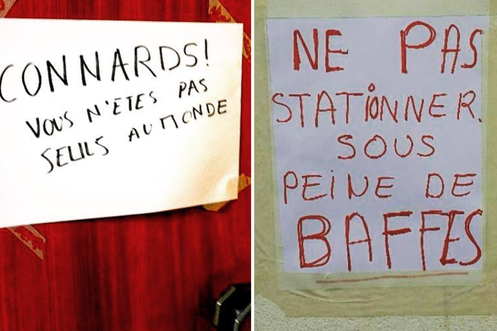 CONNARDS!
VOUS N'ÊTES PAS
SEULS AU MONDE
NE PAS
STATIONNER.
SOUS
PEINE DE
BAFFES